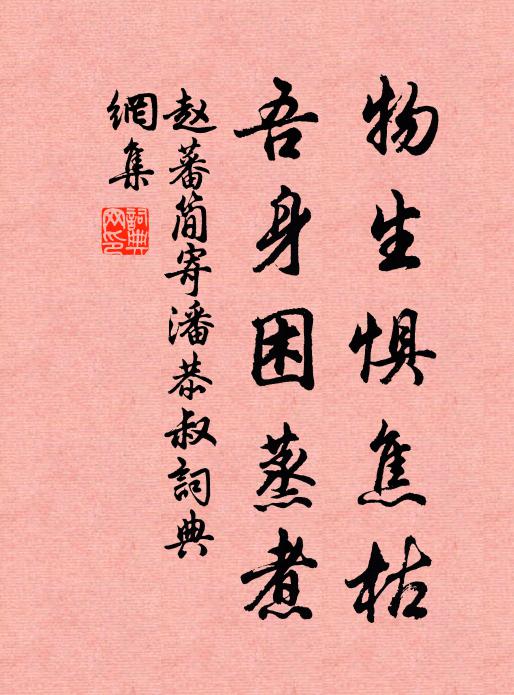 物生惧焦枯
吾身困蒸煮
赵蕃简寄潘恭叔詞典
網集
詞典网印